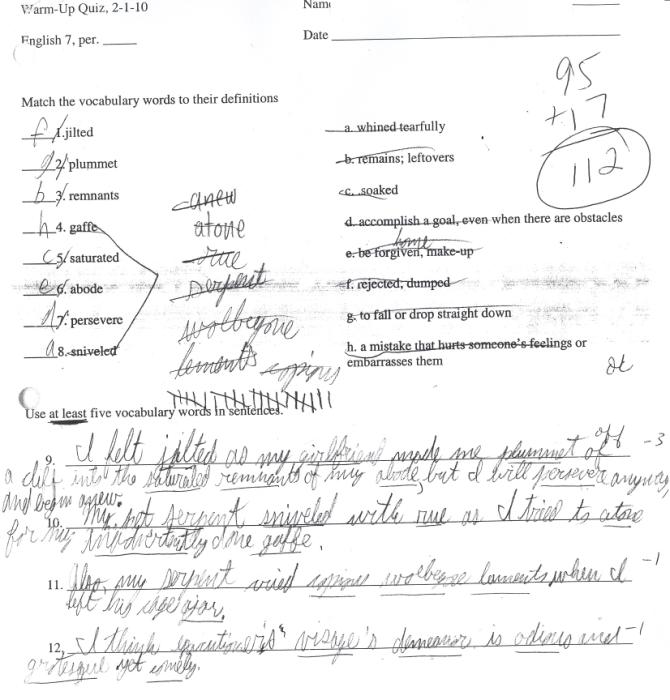 Warm-Up Quiz, 2-1-10
Name
English 7, per. ____
Date
95
+17
112
Match the vocabulary words to their definitions
f 1. jilted
g 2. plummet
b 3. remnants
h 4. gaffe
c 5. saturated
e 6. abode
d 7. persevere
a 8. sniveled
anew
atone
rue
serpent
woebegone
laments copious
a. whined tearfully
b. remains; leftovers
c. soaked
d. accomplish a goal, even when there are obstacles
home
e. be forgiven, make-up
f. rejected, dumped
g. to fall or drop straight down
h. a mistake that hurts someone's feelings or
embarrasses them
Use at least five vocabulary words in sentences.
9. I felt jilted as my girlfriend made me plummet off -3
a cliff into the saturated remnants of my abode, but I will persever anyway
and begin anew.
10. My pet serpent sniveled with rue as I tried to atone
for my inadvertently done gaffe.
11. Also, my serpent cried copious woebegone laments when I -1
left his cage ajar.
12. I think executioner's visage's demeanor is odious and -1
grotesque yet comely.